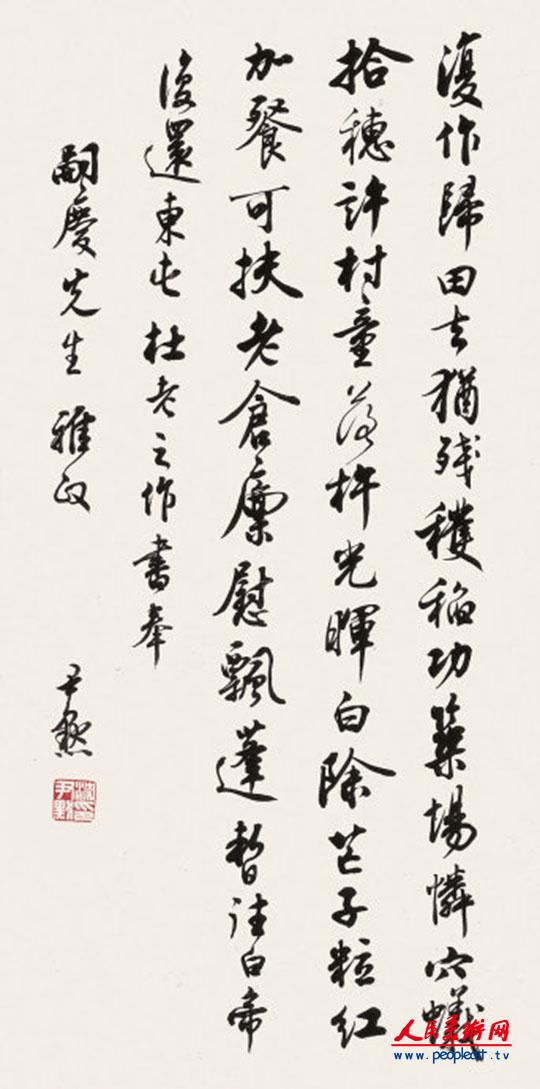 復作歸田去猶殘穫稻功築場憐穴蟻
拾穗許村童落杵光暉白除芒子粒红
加餐可扶老倉廩慰飄蓬暫往白帝
復還東屯杜老之作書奉
嗣慶先生 雅政
尹默
沈尹默印
人民美術网
www.peopleart.tv